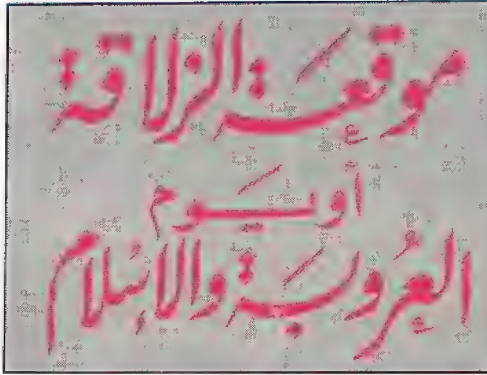 موقعة الزلاقة
أو يوم
العروبة والإسلام